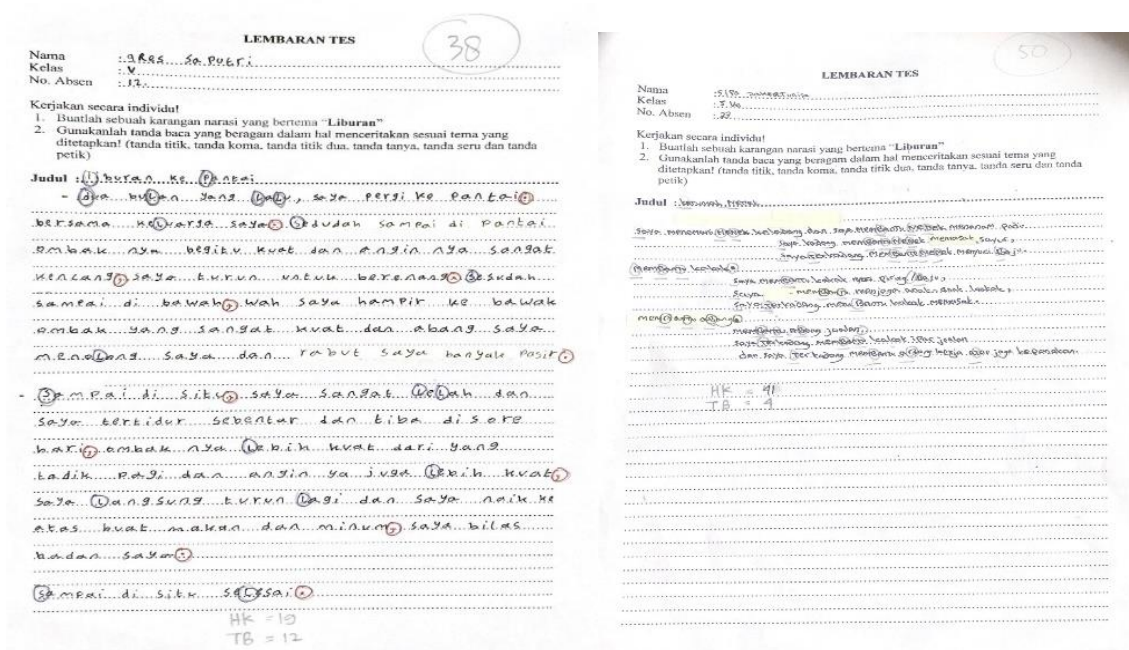 38
LEMBARAN TES
Nama : gRes sa putri
Kelas : V
No. Absen : 12.
Kerjakan secara individu!
1. Buatlah sebuah karangan narasi yang bertema "Liburan"
2. Gunakanlah tanda baca yang beragam dalam hal menceritakan sesuai tema yang
ditetapkan! (tanda titik, tanda koma, tanda titik dua, tanda tanya, tanda seru dan tanda
petik)
Judul : Liburan ke Pantai
- dua bulan yang lalu, saya pergi ke pantai.
bersama keluarga saya. Sedudah sampai di pantai
ombak nya begitu kuat dan angin nya sangat
kencang, saya turun untuk berenang. Sesudah
sampai di bawah, wah saya hampir ke bawak
ombak yang sangat kuat dan abang saya
menolong saya dan rabut saya banyak pasir.
- Sampai di situ, saya sangat lelah dan
saya tertidur sebentar dan tiba di sore
hari, ombak nya lebih kuat dari yang
tadik pagi dan angin ya juga lebih kuat,
saya langsung turun lagi dan saya naik ke
atas buat makan dan minum, saya bilas
badan saya.
Sampai di situ selesai.
HK = 19
TB = 12
50
LEMBARAN TES
Nama
Kelas
No. Absen : 29
Kerjakan secara individu!
1. Buatlah sebuah karangan narasi yang bertema "Liburan"
2. Gunakanlah tanda baca yang beragam dalam hal menceritakan sesuai tema yang
ditetapkan! (tanda titik, tanda koma, tanda titik dua, tanda tanya, tanda seru dan tanda
petik)
Judul :
saya menemui Nenek keladang dan saya membantu Nenek menanam padi.
saya kadang membantu Nenek memasak sayur,
saya terkadang membantu Nenek menyuci baju.
membantu kakak.
saya membantu kakak nyuci piring/baju,
saya membantu menjaga anak-anak kakak,
saya terkadang membantu kakak memasak.
membantu abang.
membantu abang jualan,
saya terkadang membantu
dan saya terkadang membantu abang kerja agar jaga kepanasan.
HK = 41
TB = 4